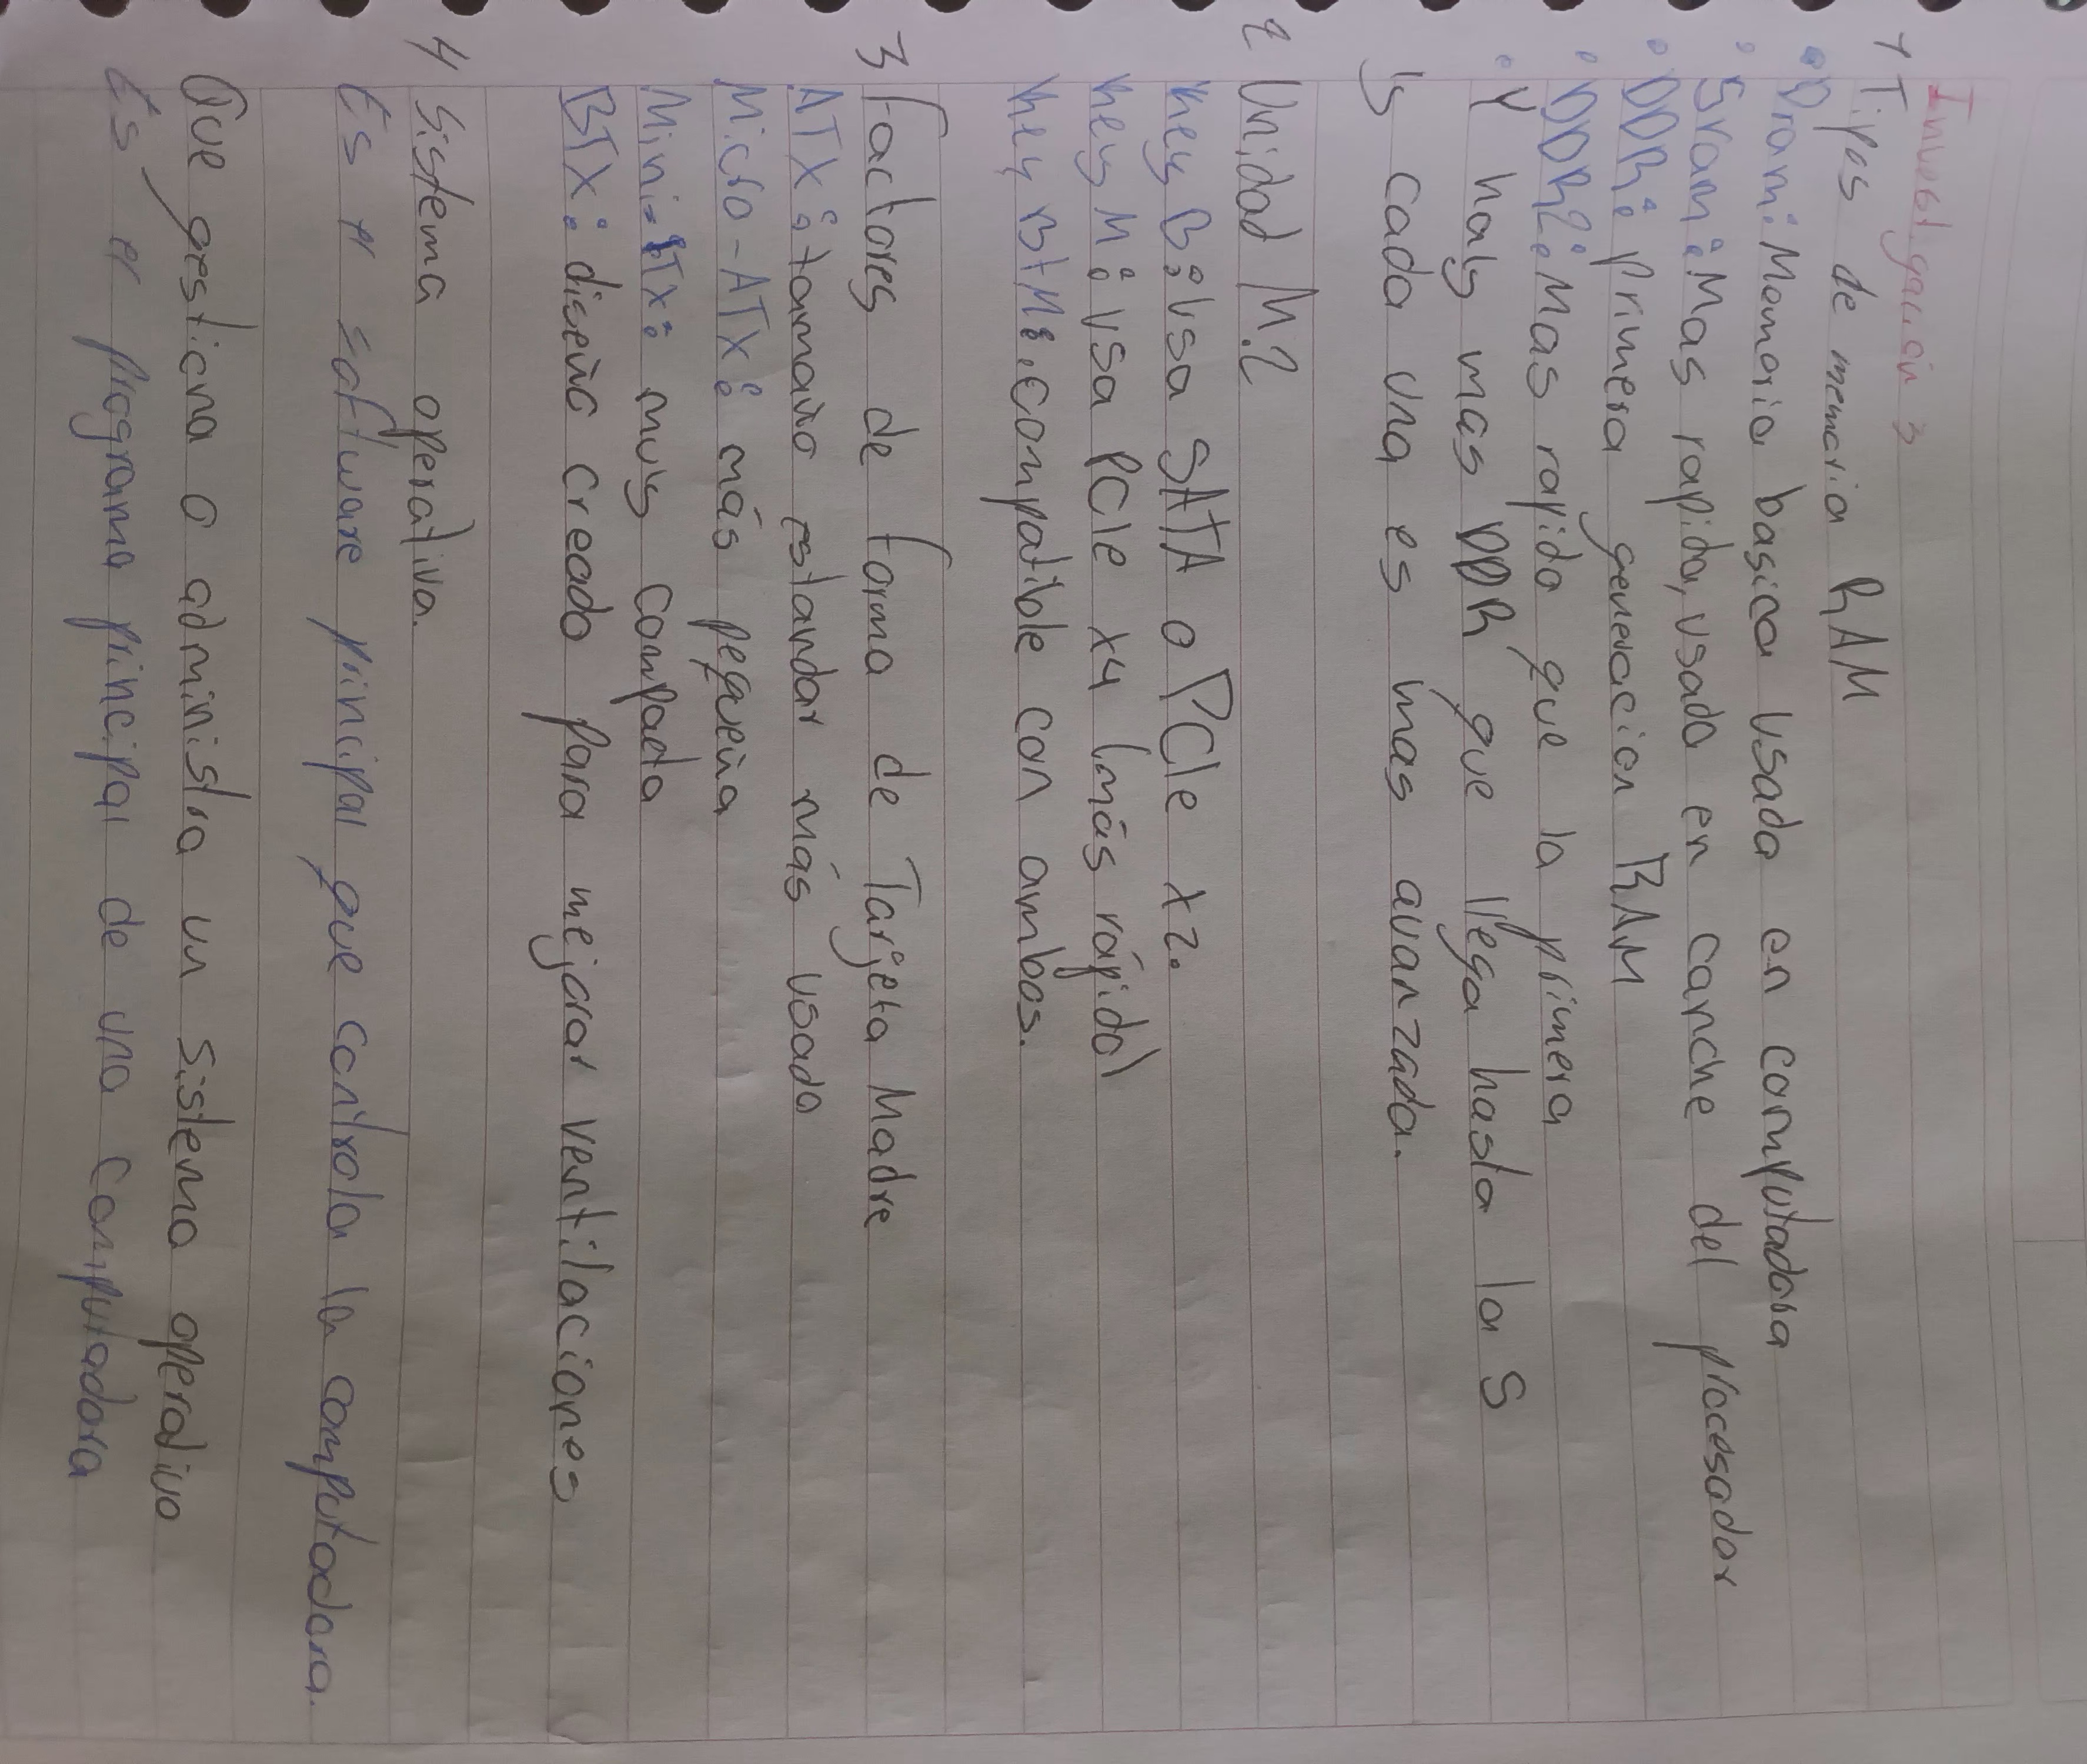 Investigación 3
1 Tipos de memoria RAM
• Dram: Memoria basica usada en computadora
• Sram: Mas rapida, usada en canche del procesador
• DDR: primera generacion RAM
• DDR2: Mas rapida que la primera
• Y haly mas DDR que llega hasta la 5
y cada una es mas avanzada.
2 Unidad M.2
key B: Usa SATA o PCIe x2.
key M: usa PCIe x4 (más rápido)
key B+M: compatible con ambos.
3 Factores de forma de Tarjeta Madre
ATX: tamaño estandar más usado
Micro-ATX: más pequeña
Mini-ITX: muy compacta
BTX: diseño creado para mejorar ventilaciones
4 Sistema operativo.
Es el software principal que controla la computadora.
Que gestiona o administra un sistema operativo
Es el programa principal de una computadora